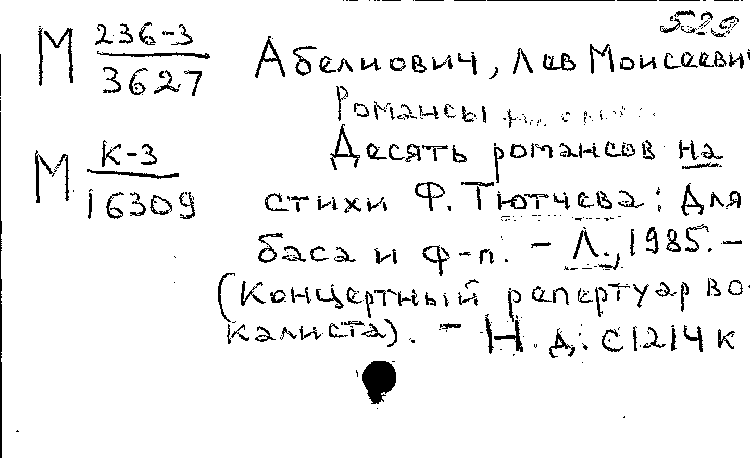 529
М 236-3
3627
Абелиович, Лев Моисеевич
Романсы
М К-3
16309
Десять романсов на
стихи Ф. Тютчева: Для
баса и ф-п. - Л., 1985.-
(Концертный репертуар во-
калиста). - Н. д.: с 1214 к